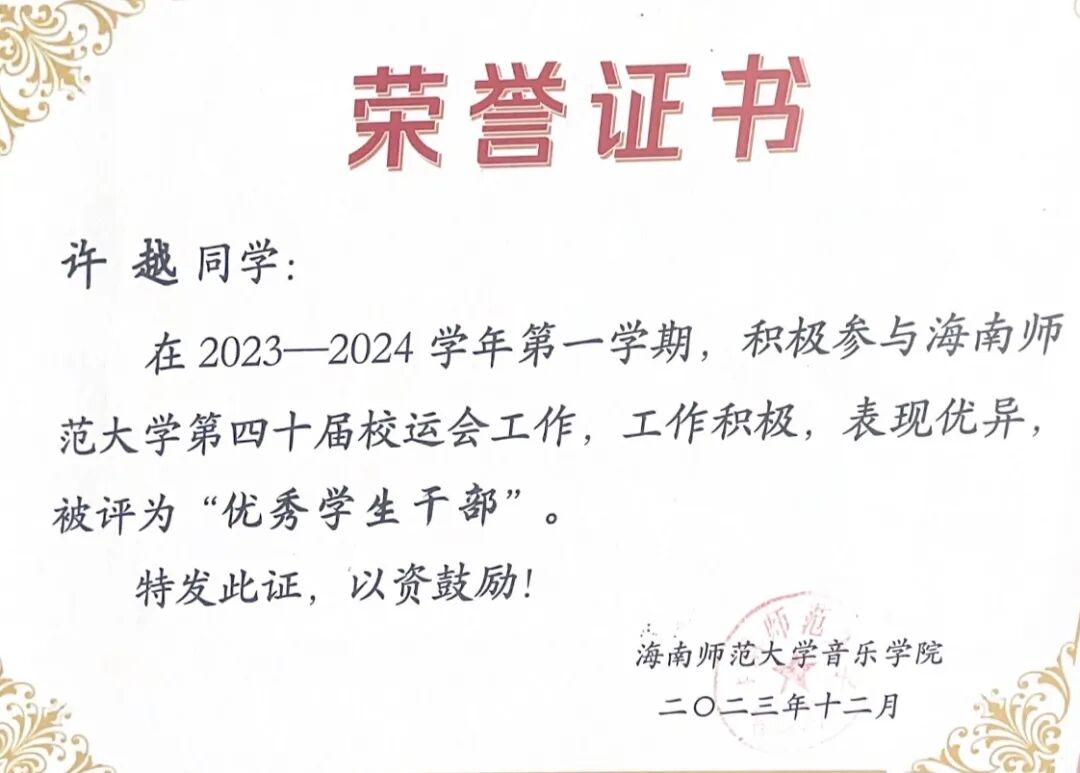 荣誉证书
许 越 同学：
在 2023—2024 学年第一学期，积极参与海南师
范大学第四十届校运会工作，工作积极，表现优异，
被评为“优秀学生干部”。
特发此证，以资鼓励！
师范
海南师范大学音乐学院
二〇二三年十二月